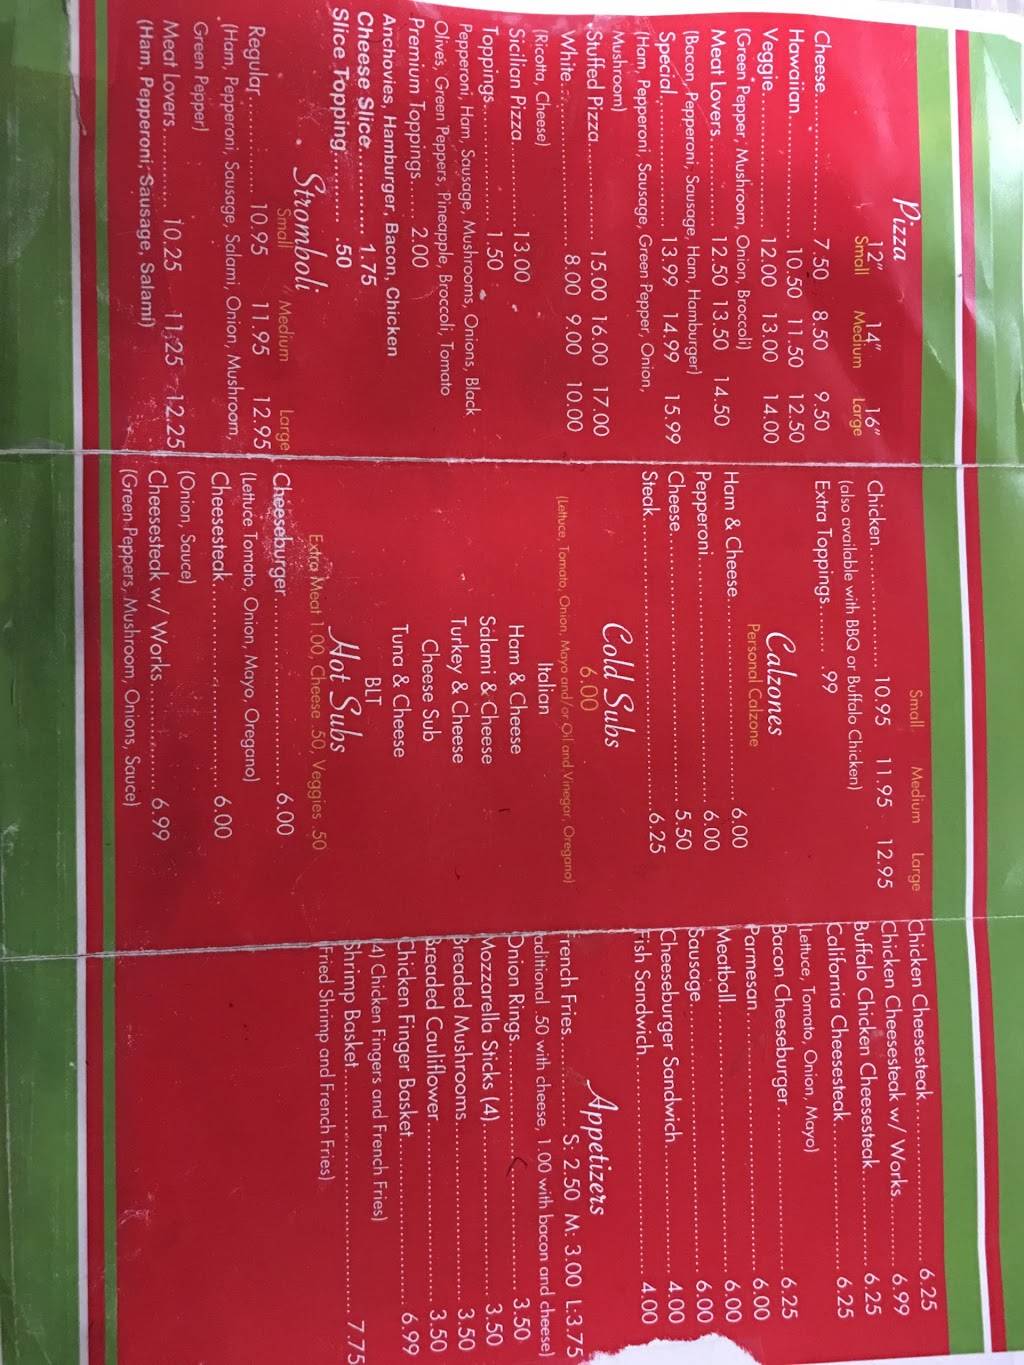 Pizza
12" 14" 16"
Small Medium Large
Cheese................ 7.50 8.50 9.50
Hawaiian............... 10.50 11.50 12.50
Veggie................ 12.00 13.00 14.00
(Green Pepper, Mushroom, Onion, Broccoli)
Meat Lovers............ 12.50 13.50 14.50
(Bacon, Pepperoni, Sausage, Ham, Hamburger)
Special................ 13.99 14.99 15.99
(Ham, Pepperoni, Sausage, Green Pepper, Onion,
Mushroom)
Stuffed Pizza............ 15.00 16.00 17.00
White................... 8.00 9.00 10.00
(Ricotta, Cheese)
Sicilian Pizza............ 13.00
Toppings................ 1.50
Pepperoni, Ham, Sausage, Mushrooms, Onions, Black
Olives, Green Peppers, Pineapple, Broccoli, Tomato
Premium Toppings.... 2.00
Anchovies, Hamburger, Bacon, Chicken
Cheese Slice........... 1.75
Slice Topping........... .50
Stromboli
Small Medium Large
Regular............... 10.95 11.95 12.95
(Ham, Pepperoni, Sausage, Salami, Onion, Mushroom,
Green Pepper)
Meat Lovers............ 10.25 11.25 12.25
(Ham, Pepperoni, Sausage, Salami)
Small Medium Large
Chicken................ 10.95 11.95 12.95
(also available with BBQ or Buffalo Chicken)
Extra Toppings...... .99
Calzones
Personal Calzone
Ham & Cheese................ 6.00
Pepperoni................ 6.00
Cheese................ 5.50
Steak................ 6.25
Cold Subs
6.00
(Lettuce, Tomato, Onion, Mayo and/or Oil and Vinegar, Oregano)
Italian
Ham & Cheese
Salami & Cheese
Turkey & Cheese
Cheese Sub
Tuna & Cheese
BLT
Hot Subs
Extra Meat 1.00, Cheese .50, Veggies .50
Cheeseburger................ 6.00
(Lettuce Tomato, Onion, Mayo, Oregano)
Cheesesteak................ 6.00
(Onion, Sauce)
Cheesesteak w/ Works................ 6.99
(Green Peppers, Mushroom, Onions, Sauce)
Chicken Cheesesteak................ 6.25
Chicken Cheesesteak w/ Works............ 6.99
Buffalo Chicken Cheesesteak............ 6.25
California Cheesesteak................ 6.25
(Lettuce, Tomato, Onion, Mayo)
Bacon Cheeseburger................ 6.25
Parmesan................ 6.00
Meatball................ 6.00
Sausage................ 6.00
Cheeseburger Sandwich................ 4.00
Fish Sandwich................ 4.00
Appetizers
French Fries............ S: 2.50 M: 3.00 L:3.75
(additional .50 with cheese, 1.00 with bacon and cheese)
Onion Rings................ 3.50
Mozzarella Sticks (4)................ 3.50
Breaded Mushrooms................ 3.50
Breaded Cauliflower................ 3.50
Chicken Finger Basket................ 6.99
(4) Chicken Fingers and French Fries)
Shrimp Basket................ 7.75
(Fried Shrimp and French Fries)